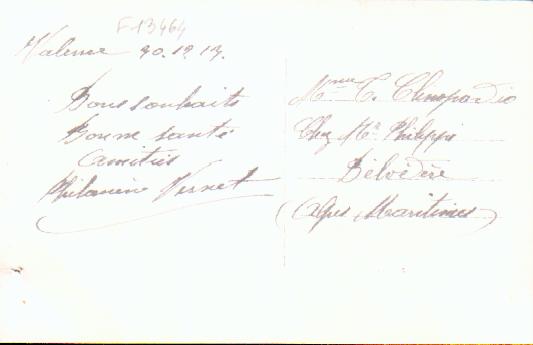 F-13464
Valence 30.12.13.
Bons souhaits
Bonne santé
Amitiés
Philomène Vernet
Mme C.
Chez Mr Philippe
Belvédère
(Alpes Maritimes)